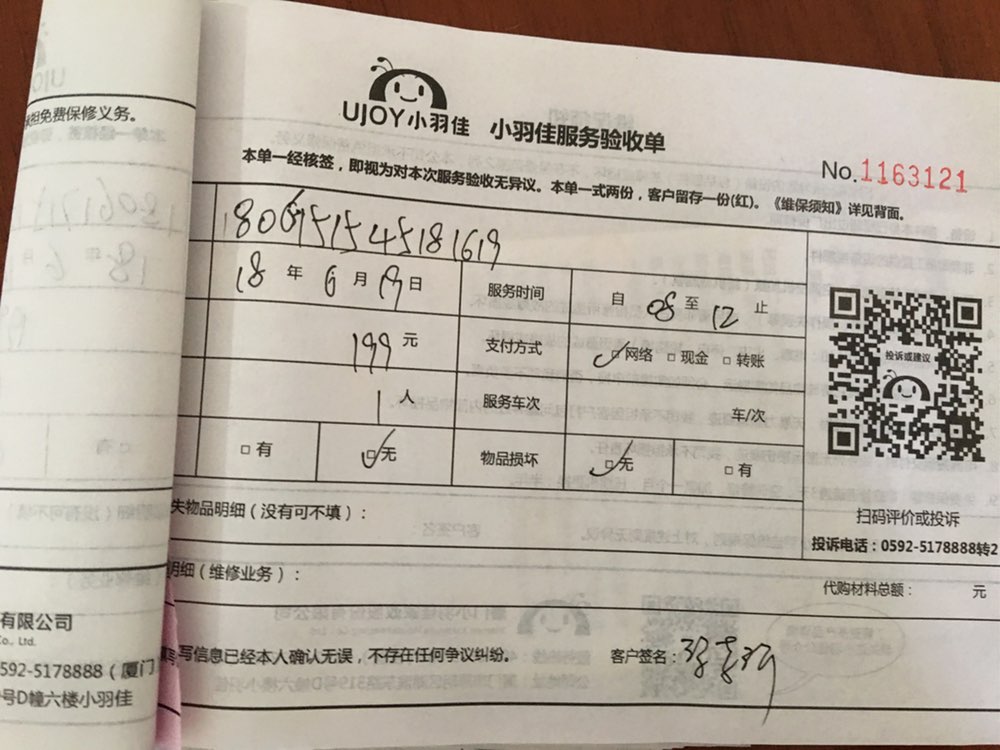 UJOY小羽佳 小羽佳服务验收单
No.1163121
本单一经核签，即视为对本次服务验收无异议。本单一式两份，客户留存一份(红)。《维保须知》详见背面。
18 年 6 月 19 日 服务时间 自 08 至 12 止
199 元 支付方式 网络 现金 转账
1 人 服务车次 车/次
有 无 物品损坏 无 有
投诉或建议
扫码评价或投诉
投诉电话：0592-5178888转2
失物品明细（没有可不填）：
明细（维修业务）：
代购材料总额： 元
写信息已经本人确认无误，不存在任何争议纠纷。 客户签名：
担免费保修义务。
有
有限公司
Co., Ltd.
592-5178888（厦门
号D幢六楼小羽佳